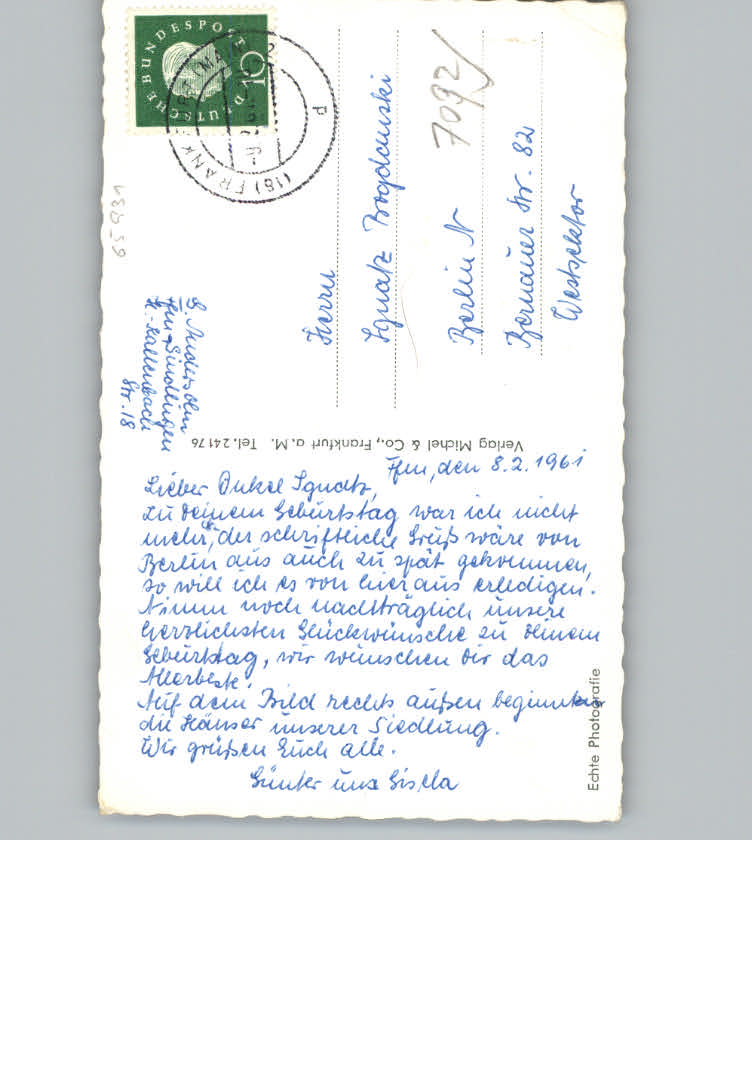 DEUTSCHE BUNDESPOST
10
(16) FRANKFURT (MAIN) 2
p
65 931
7092
Herrn
Ignatz Bogdanski
Berlin N
Bernauer Str. 82
Westsektor
G.
Ffm-Sindlingen
H.-Kallenbach
Str. 18
Verlag Michel & Co., Frankfurt a. M. Tel. 24176
Ffm, den 8.2.1961
Lieber Onkel Ignatz,
zu deinem Geburtstag war ich nicht
mehr da, der schriftliche Gruß wäre von
Berlin aus auch zu spät gekommen,
so will ich es von hier aus erledigen.
Nimm noch nachträglich unsere
herzlichsten Glückwünsche zu deinem
Geburtstag, wir wünschen dir das
Allerbeste!
Auf dem Bild rechts außen beginnen
die Häuser unserer Siedlung.
Wir grüßen Euch alle.
Günter und Gisela
Echte Photografie